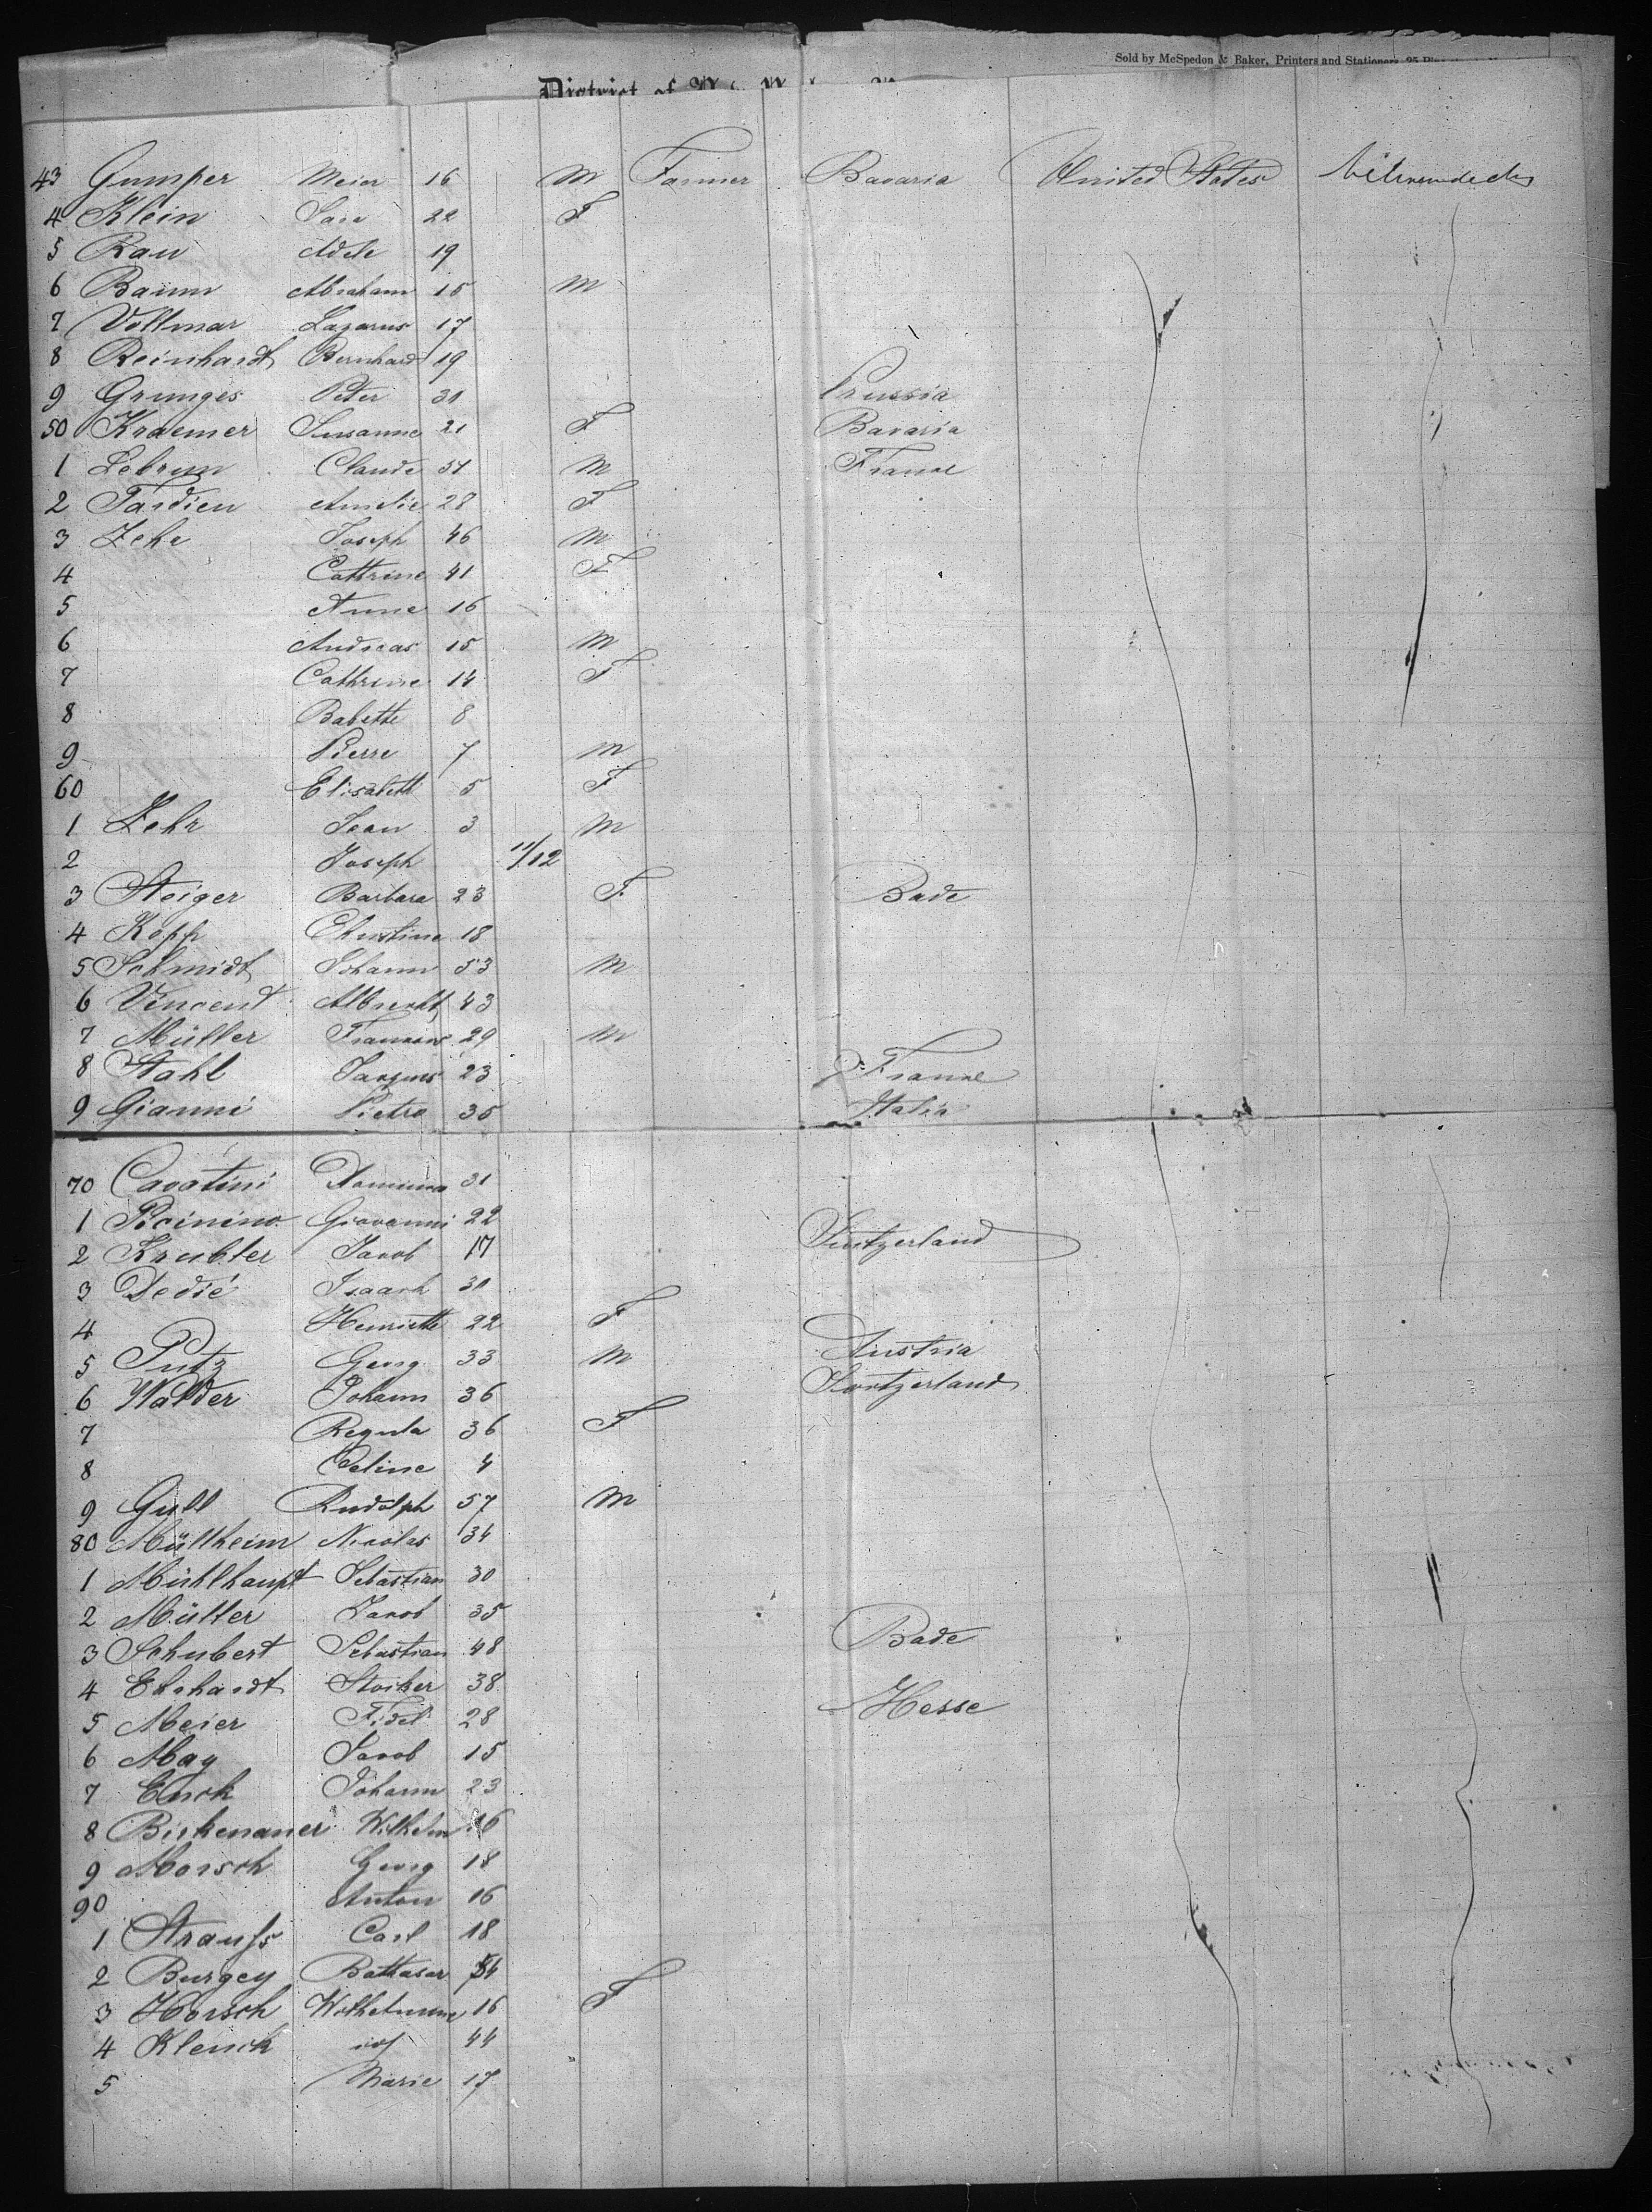 Sold by McSpedon & Baker, Printers and Stationers, 25
District of
43 Gumper Meier 16 M Farmer Bavaria United States
4 Klein Sara 22 F
5 Rau Adele 19
6 Baum Abraham 15 M
7 Vollmar Lazarus 17
8 Reinhardt Bernhard 19
9 Grunges Peter 30 Prussia
50 Kraemer Susanne 21 F Bavaria
1 Lebrun Claude 51 M France
2 Tardieu Amelie 28 F
3 Zehr Joseph 46 M
4 Cathrine 41 F
5 Anne 16
6 Andreas 15 M
7 Cathrine 14 F
8 Babette 8
9 Pierre 7 M
60 Elisabeth 5 F
1 Zehr Jean 3 M
2 Joseph 11/12
3 Steiger Barbara 23 F Bade
4 Kopp Christine 18
5 Schmidt Johann 53 M
6 Vincent Albrecht 43
7 Müller Francois 29 M
8 Stahl Jacques 23 France
9 Gianni Pietro 35 Italia
70 Cavatini 31
1 Picinino Giovanni 22
2 Krubler Jacob 17 Switzerland
3 Dedié Isaack 30
4 Henriette 22 F
5 Putz Georg 33 M Austria
6 Walder Johann 36 Switzerland
7 Regula 36 F
8 Celine 4
9 Gull Rudolph 57 M
80 Müllheim Nicolas 34
1 Mühlhaupt Sebastian 30
2 Müller Jacob 35 Bade
3 Schubert Sebastian 48
4 Ehrhardt 38 Hesse
5 Meier Fidel 28
6 May Jacob 15
7 Enck Johann 23
8 Birkenauer Wilhelm 16
9 Morsch Georg 18
90 Anton 16
1 Strauss Carl 18
2 Burgey Balthasar 54
3 Horsch Wilhelmine 16 F
4 Klenck 44
5 Marie 17